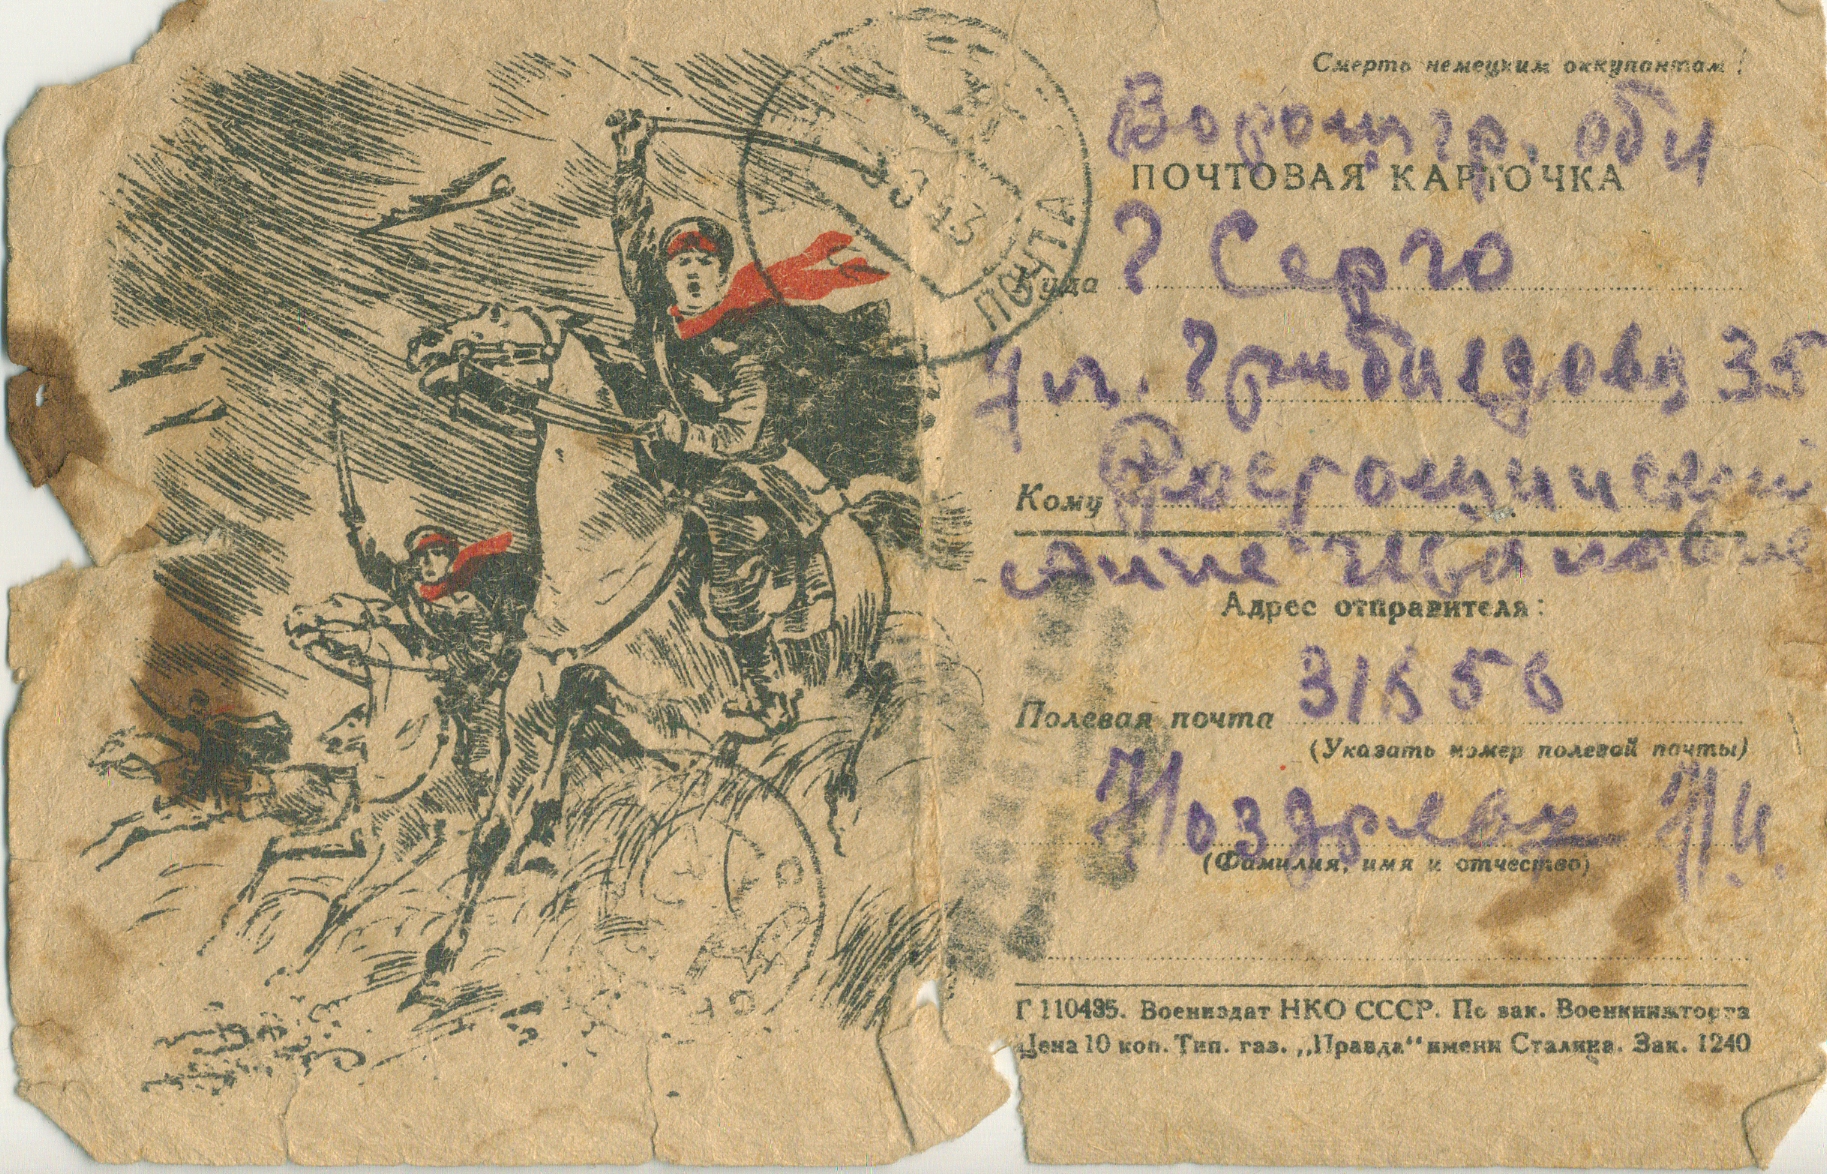 Смерть немецким оккупантам!
Ворошгр. обл
ПОЧТОВАЯ КАРТОЧКА
Куда г Серго
Ул. Грибоедова 35
Кому
Анне Ивановне
Адрес отправителя:
Полевая почта 31656
(Указать номер полевой почты)
Ноздрев Н.
(Фамилия, имя и отчество)
Г 110435. Воениздат НКО СССР. По зак. Военкнижторга
Цена 10 коп. Тип. газ. „Правда“ имени Сталина. Зак. 1240
43
ПОЧТА